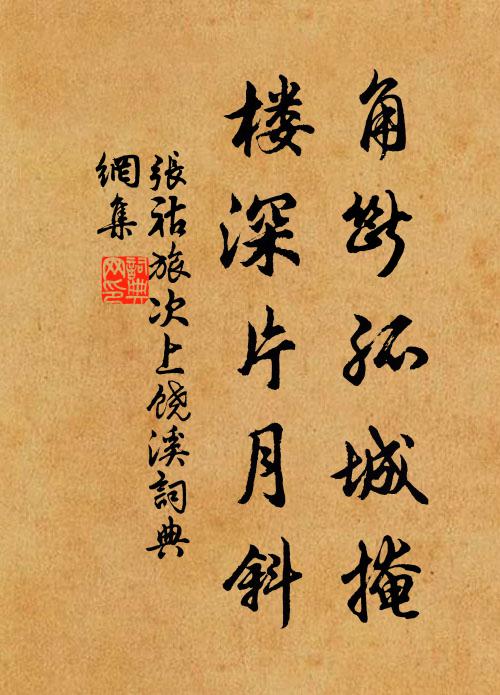 角断孤城掩
楼深片月斜
張祜旅次上饶溪詞典
網集
詞典
网印